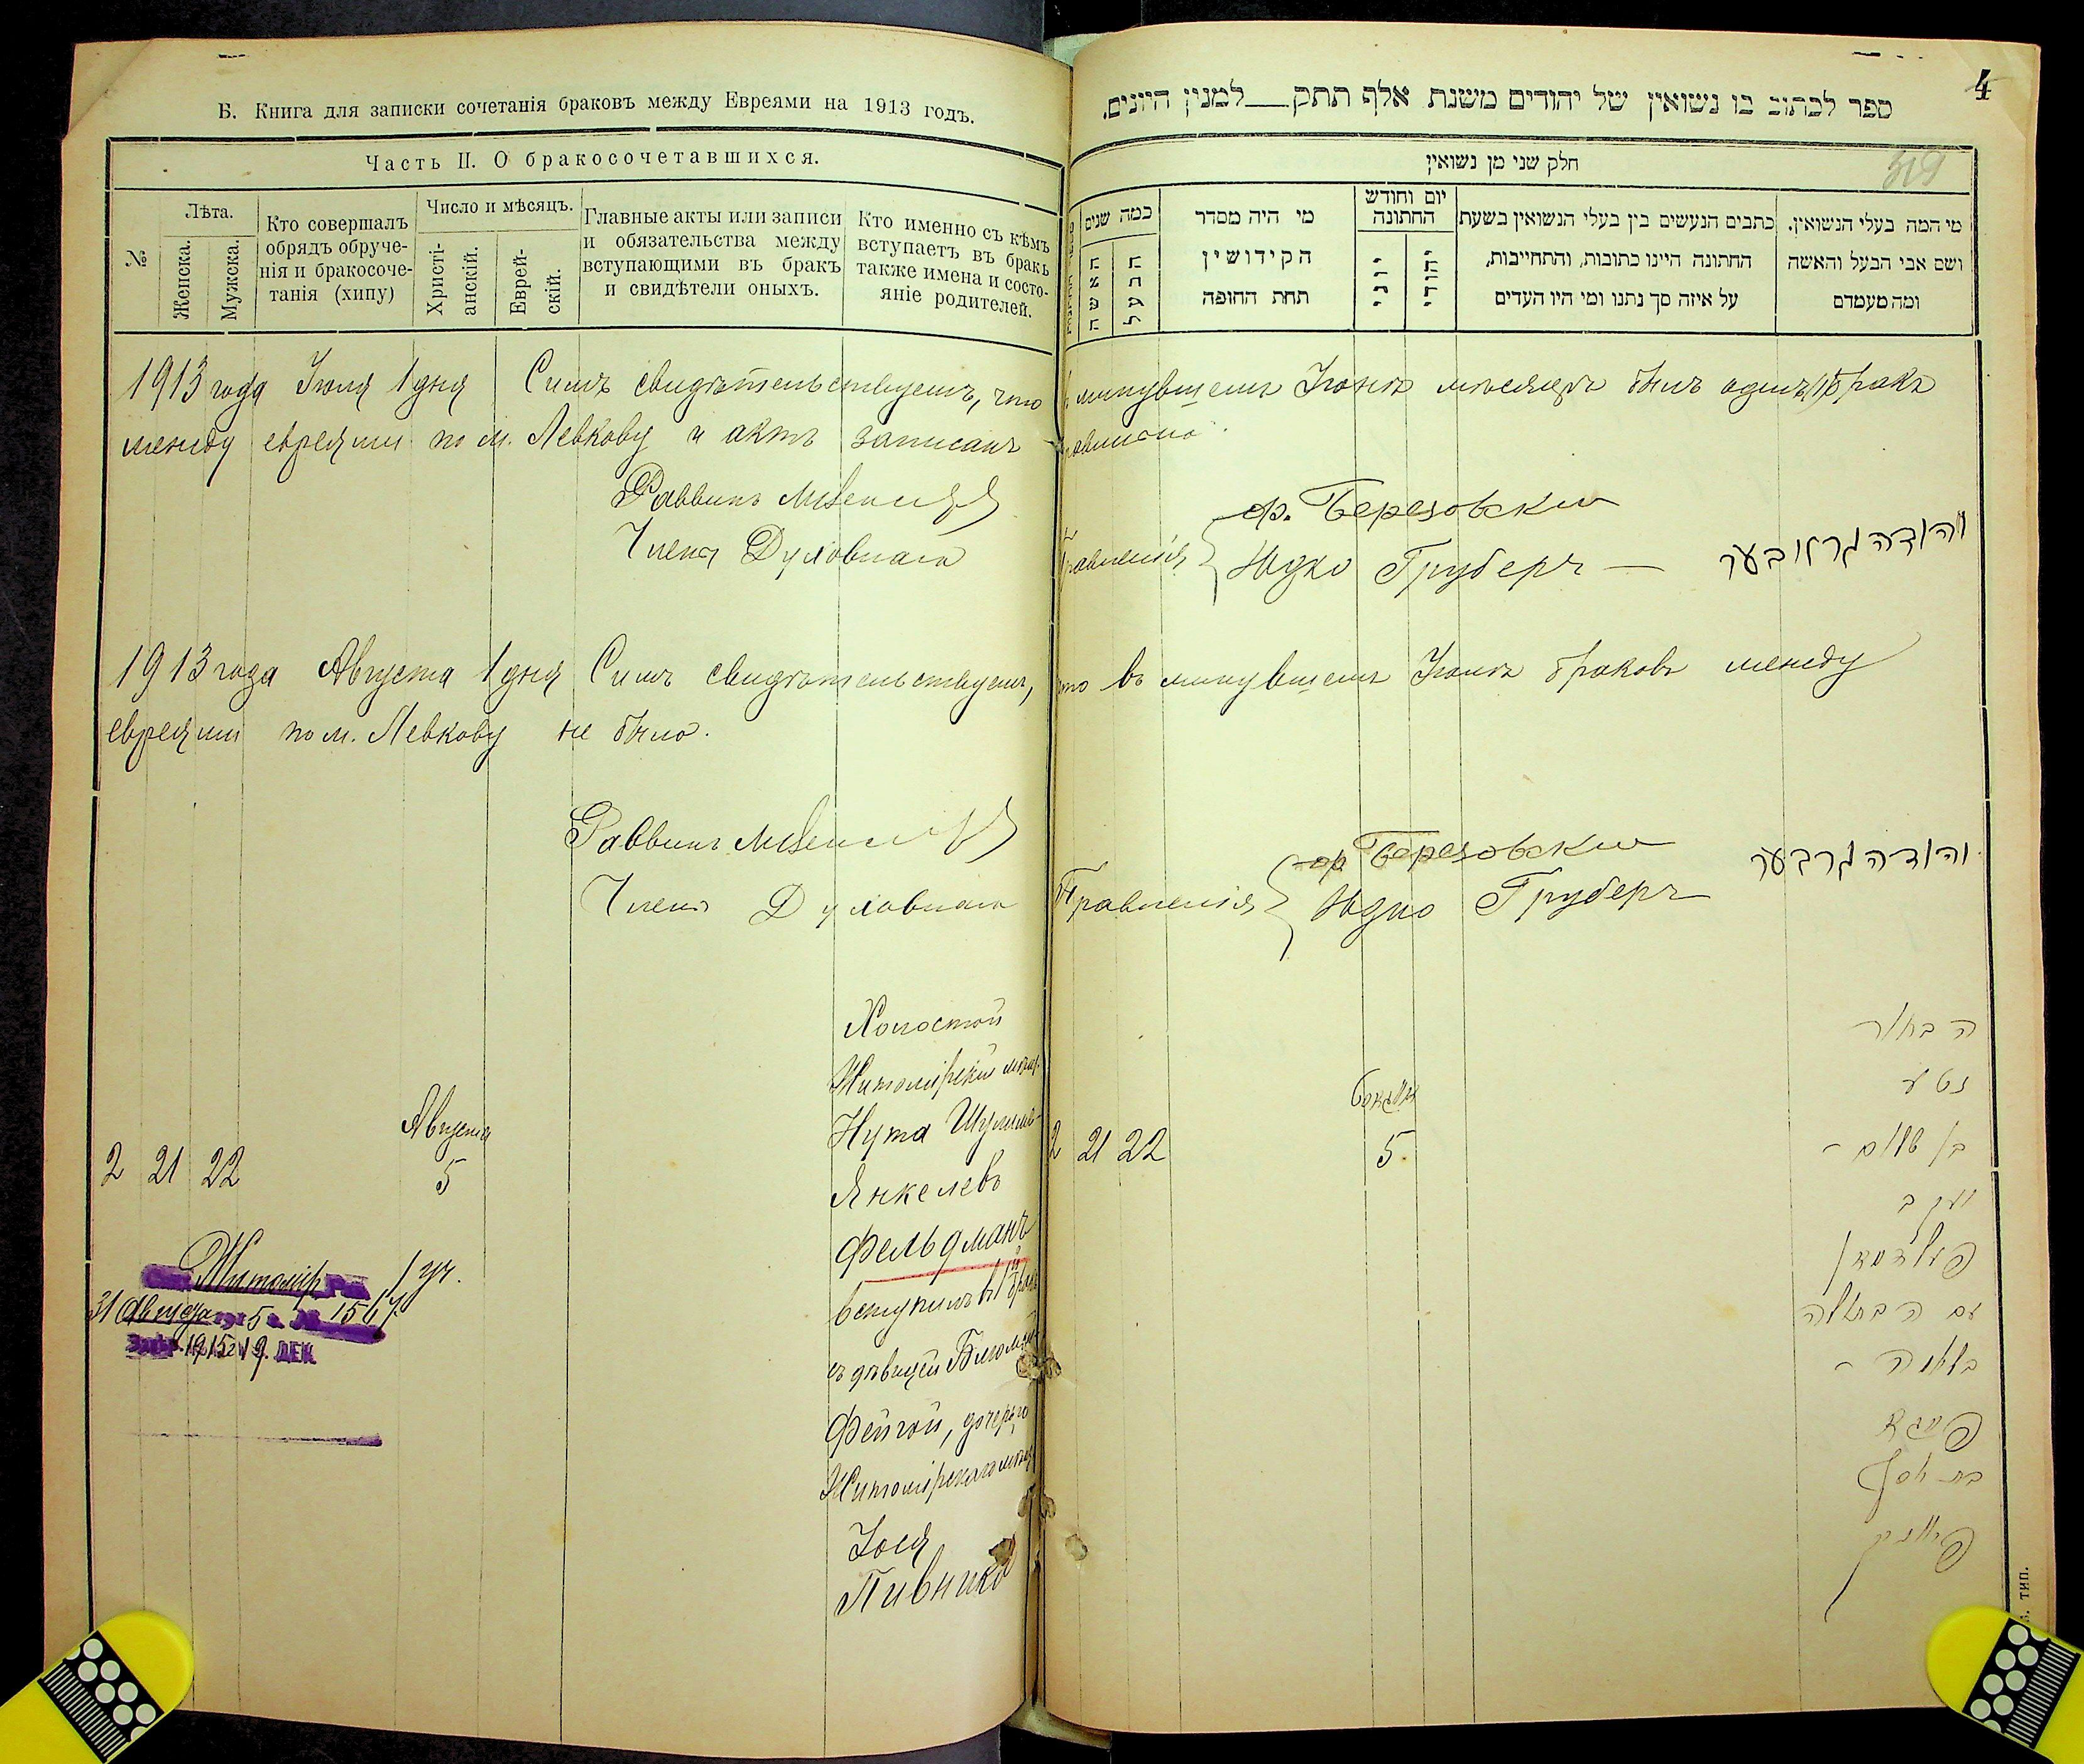 Б. Книга для записки сочетанія браковъ между Евреями на 1913 годъ.
Часть II. О бракосочетавшихся.
№
Лѣта.
Женска.
Мужска.
Кто совершалъ
обрядъ обруче-
нія и бракосоче-
танія (хипу)
Число и мѣсяцъ.
Христі-
анскій.
Еврей-
скій.
Главные акты или записи
и обязательства между
вступающими въ бракъ
и свидѣтели оныхъ.
Кто именно съ кѣмъ
вступаетъ въ бракъ
также имена и состо-
яніе родителей.
4
ספר לכתוב בו נשואין של יהודים משנת אלף תתק___למנין היונים.
319
חלק שני מן נשואין
כמה שנים
האשה
הבעל
מי היה מסדר
הקידושין
תחת החופה
יום וחודש
החתונה
יוני
יהודי
כתבים הנעשים בין בעלי הנשואין בשעת
החתונה היינו כתובות, והתחייבות,
על איזה סך נתנו ומי היו העדים
מי המה בעלי הנשואין.
ושם אבי הבעל והאשה
ומה מעמדם
1913 года Июля 1 дня Симъ свидѣтельствуемъ, что в минувшемъ Июнѣ мѣсяцѣ былъ одинъ (1) бракъ
между евреями по м. Левкову и актъ записанъ правильно.
Раввинъ
Члены Духовнаго Правленія
Березовскій
Юдко Груберъ —
יהודה גרובער
1913 года Августа 1 дня Симъ свидѣтельствуемъ, что въ минувшемъ Июлѣ браковъ между
евреями по м. Левкову не было.
Раввинъ
Члены Духовнаго Правленія
Березовскій
Юдко Груберъ
יהודה גרבער
2 21 22
Августа
5
Холостой
Житомірскій мѣщ.
Нута Шулимъ-
Янкелевъ
Фельдманъ
вступилъ въ 1й бракъ
съ дѣвицей Блюмой-
Фейгой, дочерью
Житомірскаго мѣщ.
Иося
Пивника
Житомір
1 уч.
31 Августа 1915 г. № 1567
1915 г. 19. ДЕК
2 21 22
אווגוסט
5
הבחור
נטע
בן שלום -
יעקב
פעלדמאן
עם הבתולה
בלומה -
פייגא
בת יוסף
פיווניק
тип.